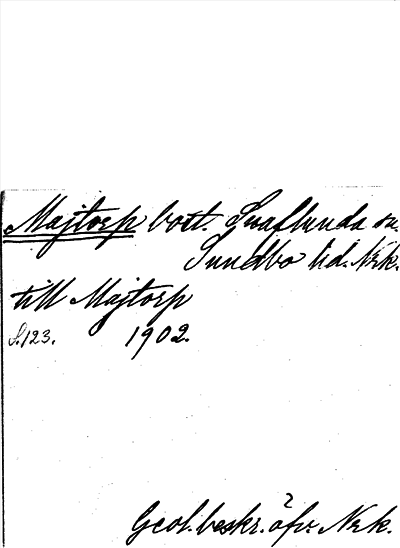 Majtorp bott. Snaflunda sn.
Sundbo hd. Nrk.
till Majtorp
S.123. 1902.
Geol. beskr. öfv. Nrk.